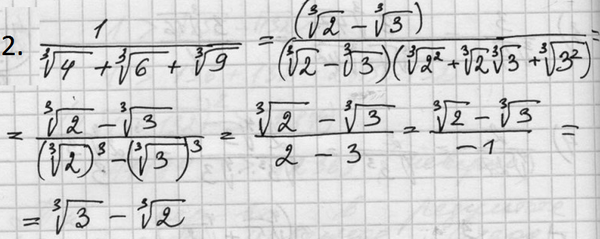 2. \frac{1}{\sqrt[3]{4} + \sqrt[3]{6} + \sqrt[3]{9}} = \frac{(\sqrt[3]{2} - \sqrt[3]{3})}{(\sqrt[3]{2} - \sqrt[3]{3})(\sqrt[3]{2^2} + \sqrt[3]{2}\sqrt[3]{3} + \sqrt[3]{3^2})} =
= \frac{\sqrt[3]{2} - \sqrt[3]{3}}{(\sqrt[3]{2})^3 - (\sqrt[3]{3})^3} = \frac{\sqrt[3]{2} - \sqrt[3]{3}}{2 - 3} = \frac{\sqrt[3]{2} - \sqrt[3]{3}}{-1} =
= \sqrt[3]{3} - \sqrt[3]{2}